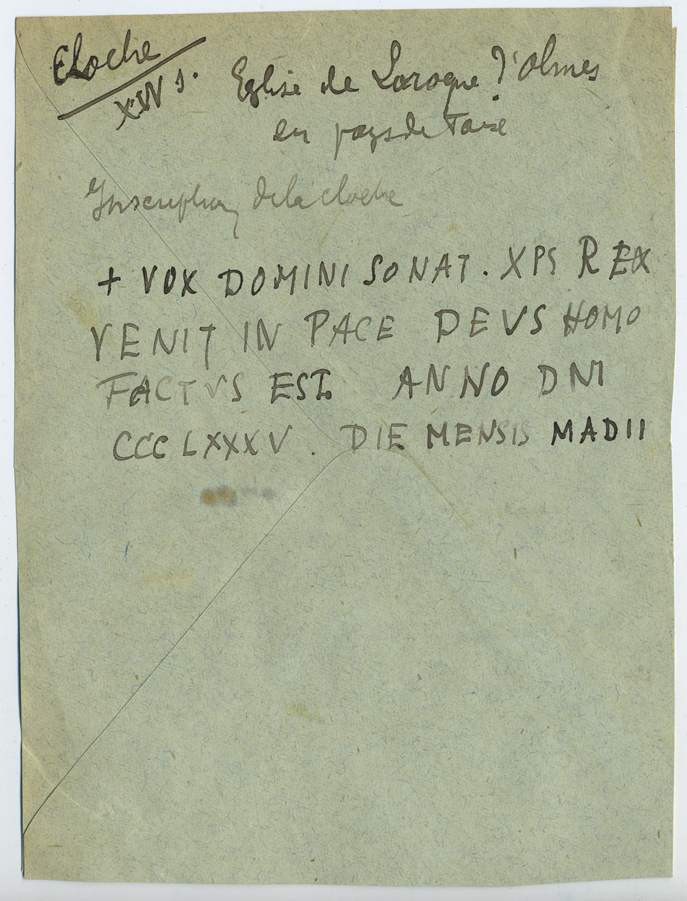 Cloche
XIV s.
Eglise de Laroque d'Olmes
en pays de Foix
Inscription de la cloche
+ VOX DOMINI SONAT. XPS REX
VENIT IN PACE DEVS HOMO
FACTVS EST. ANNO DNI
CCCLXXXV. DIE MENSIS MADII